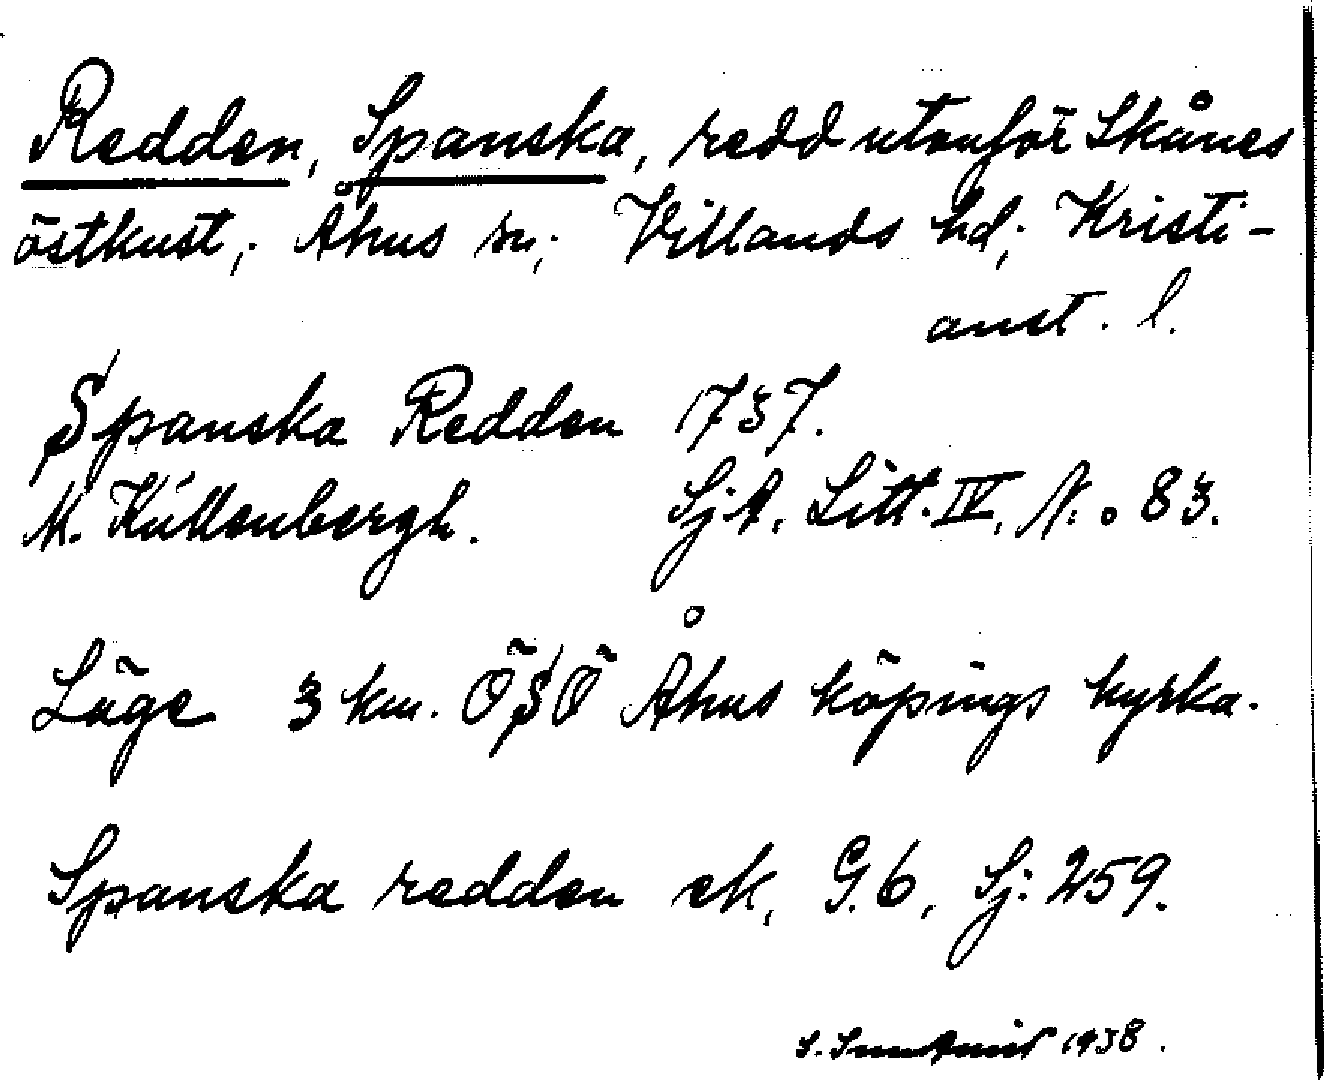 Redden, Spanska, redd utanför Skånes
östkust; Åhus sn; Villands hd; Kristi-
anst. l.
Spanska Redden 1737.
M. Küllenbergh. SjA, Litt. IV, N:o 83.
Läge 3 km. ÖSÖ Åhus köpings kyrka.
Spanska redden ek, G.6, Sj: 259.
S. 1938.